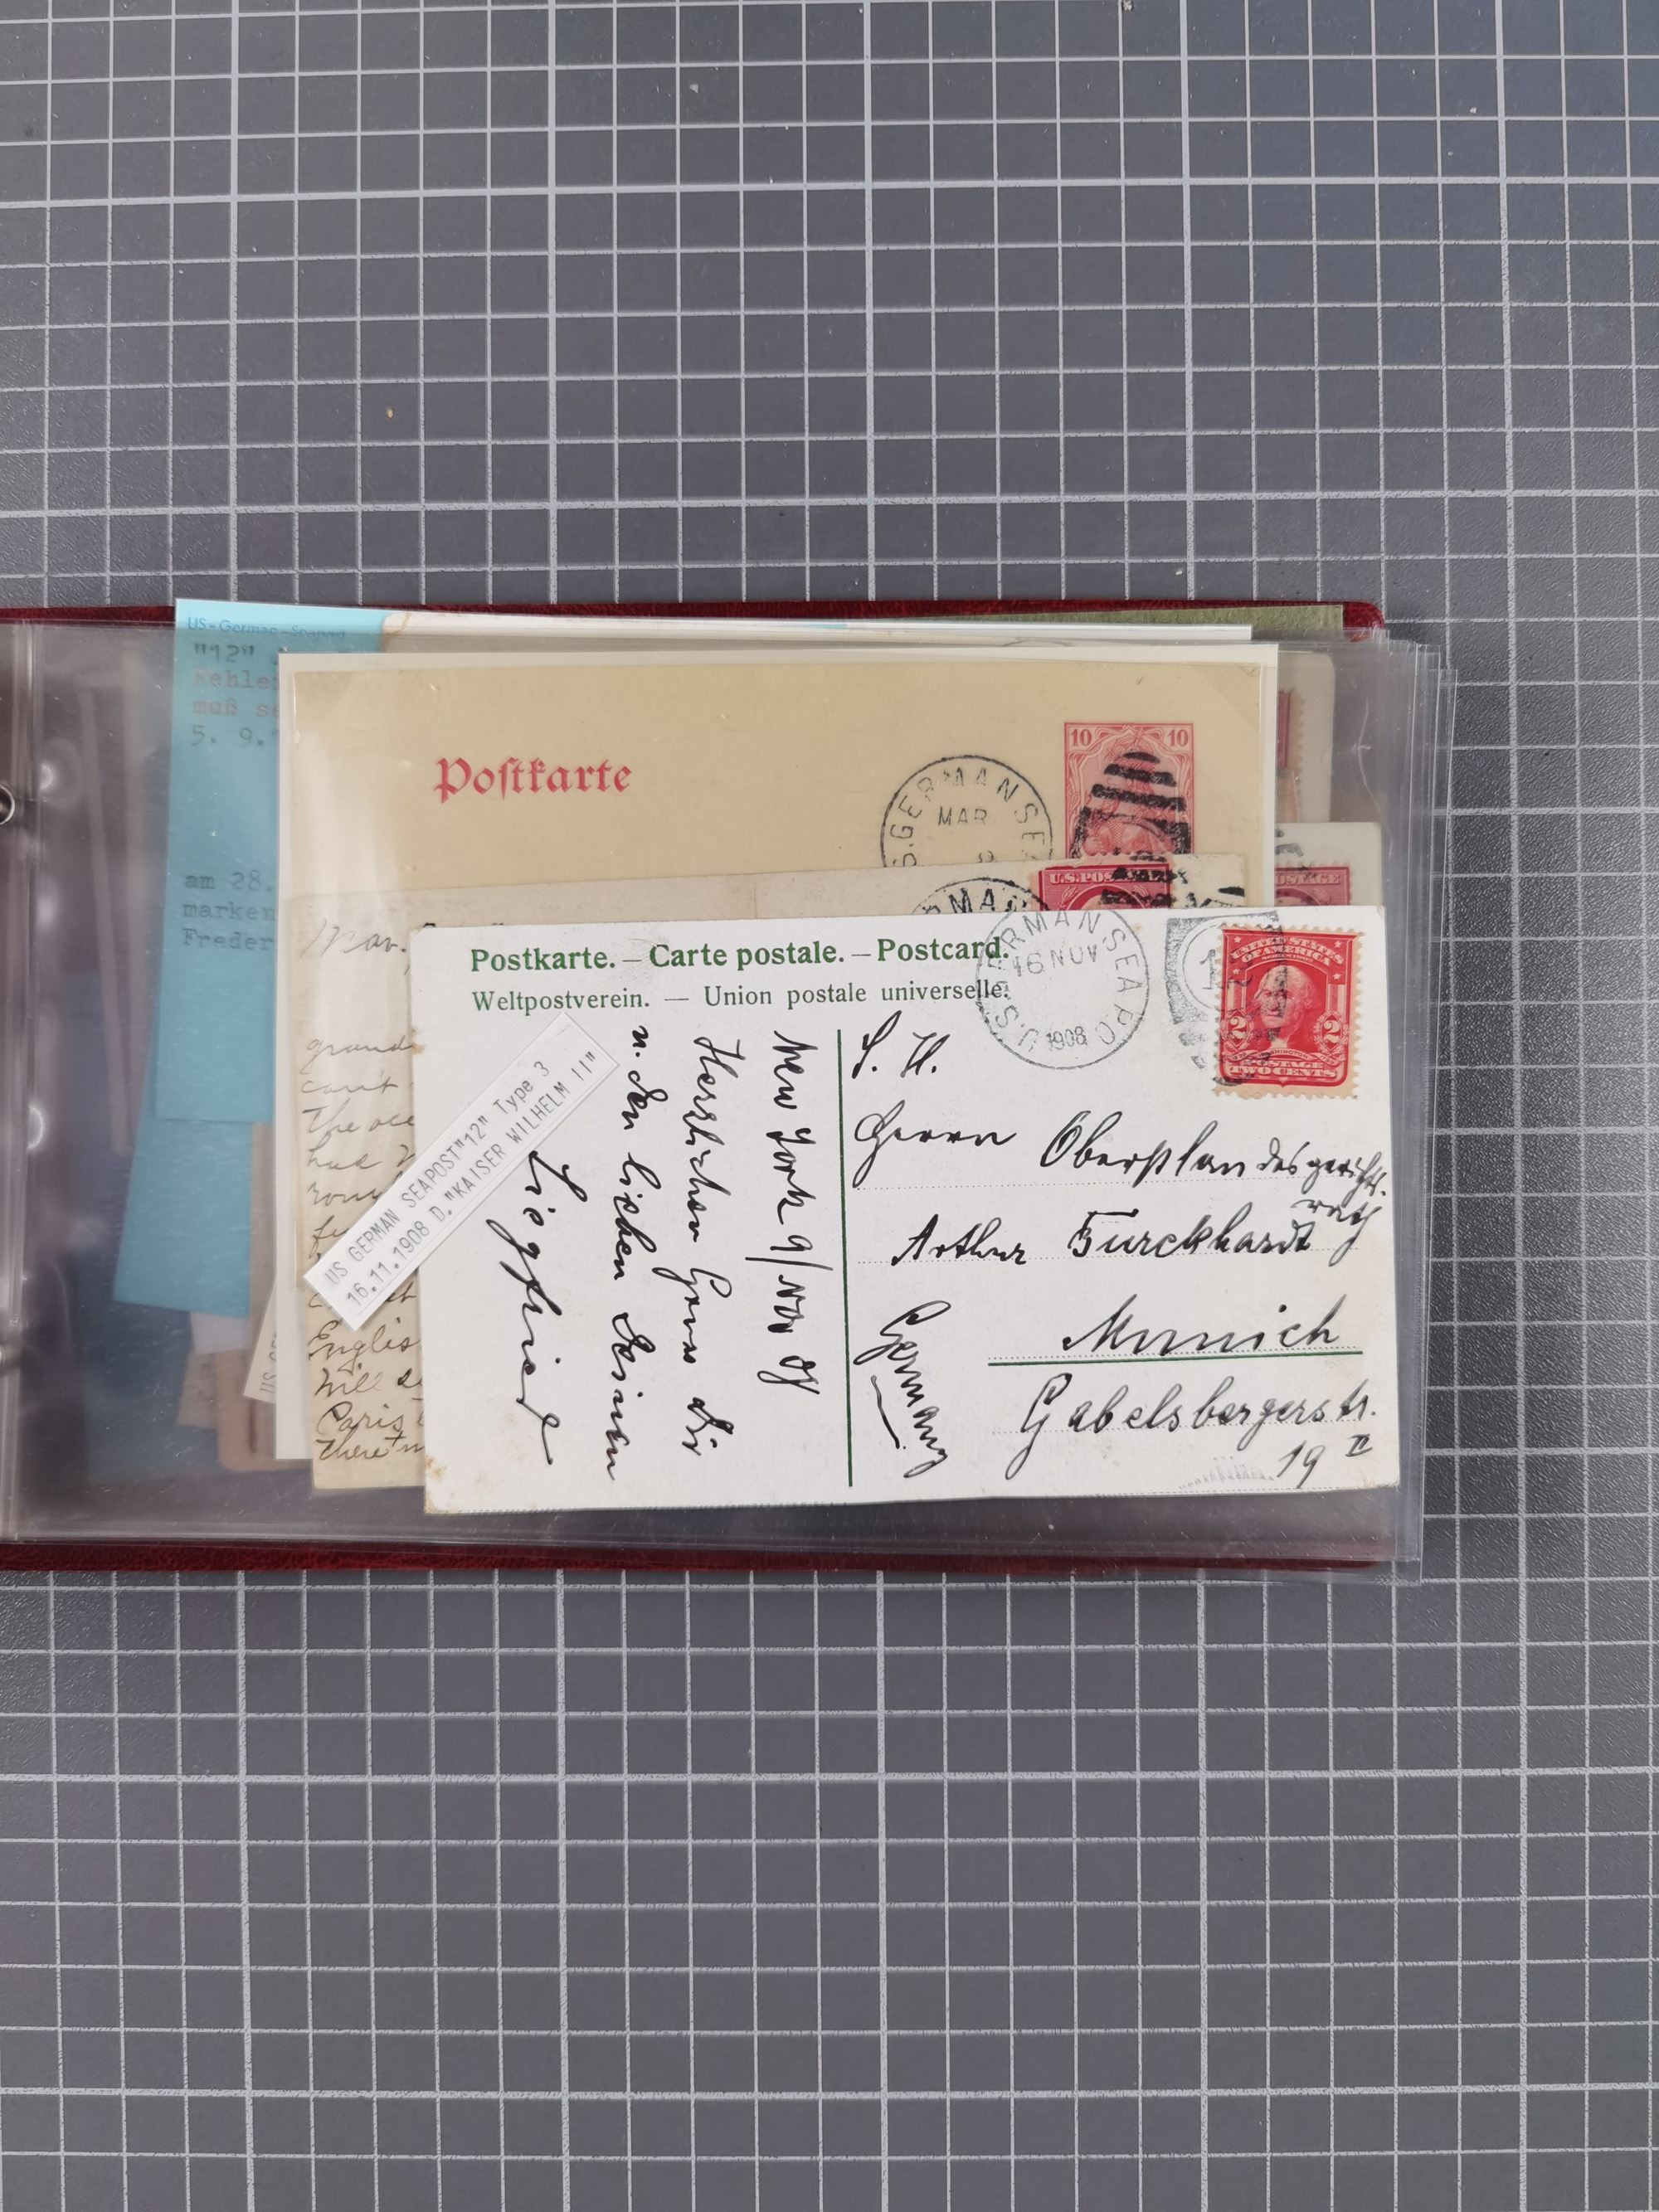 US-German-Seapost
"12"
muß se
5. 9.
am 28.
marken
Freder
Postkarte
10 10
S. GERMAN SE
MAR
U.S. POS
OSTAGE
RMAN
Mav.
grand
cant
The oce
had
rom
Englis
will se
Paris
there
Postkarte. – Carte postale. – Postcard.
Weltpostverein. — Union postale universelle.
U.S. GERMAN SEA P.O.
16 NOV
1908
12
UNITED STATES
OF AMERICA
2 2
POSTAGE
TWO CENTS
US GERMAN SEAPOST"12" Type 3
16.11.1908 D."KAISER WILHELM II"
New York 9/Nov 08
Herzlichen Gruss Dir
u. den lieben Deinen
Siegfried
S. H.
Herrn Oberstlandesgerichts.
rath
Arthur Burckhardt
Munich
Gabelsbergerstr.
19 II
Germany